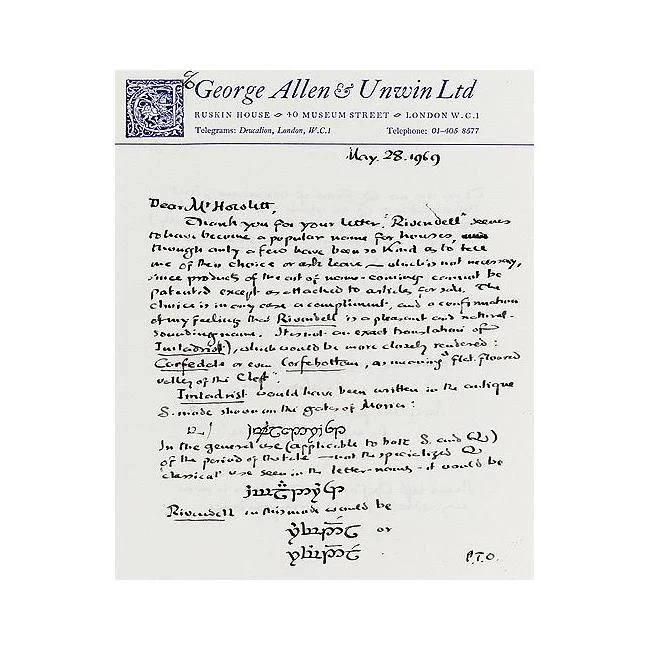 c/o George Allen & Unwin Ltd
RUSKIN HOUSE 40 MUSEUM STREET LONDON W.C.1
Telegrams: Deucalion, London, W.C.1 Telephone: 01-405 8577
May. 28. 1969
Dear Mr Howlett,
Thank you for your letter. "Rivendell" seems
to have become a popular name for houses,
though only a few have been so kind as to tell
me of their choice or ask leave – which is not necessary,
since products of the art of name-coining cannot be
patented except as attached to articles for sale. The
choice is in any case a compliment, and a confirmation
of my feeling that Rivendell is a pleasant and natural-
sounding name. It is not an exact translation of
Imladrist), which would be more closely rendered:
or even , as meaning "flat floored
valley of the Cleft".
Imladrist would have been written in the antique
S. mode shown on the gates of Moria:
In the general use (applicable to both S. and Q)
of the period of the tale — not the specialized Q
'classical' use seen in the letter-names – it would be
Rivendell in this mode would be
or
P.T.O.